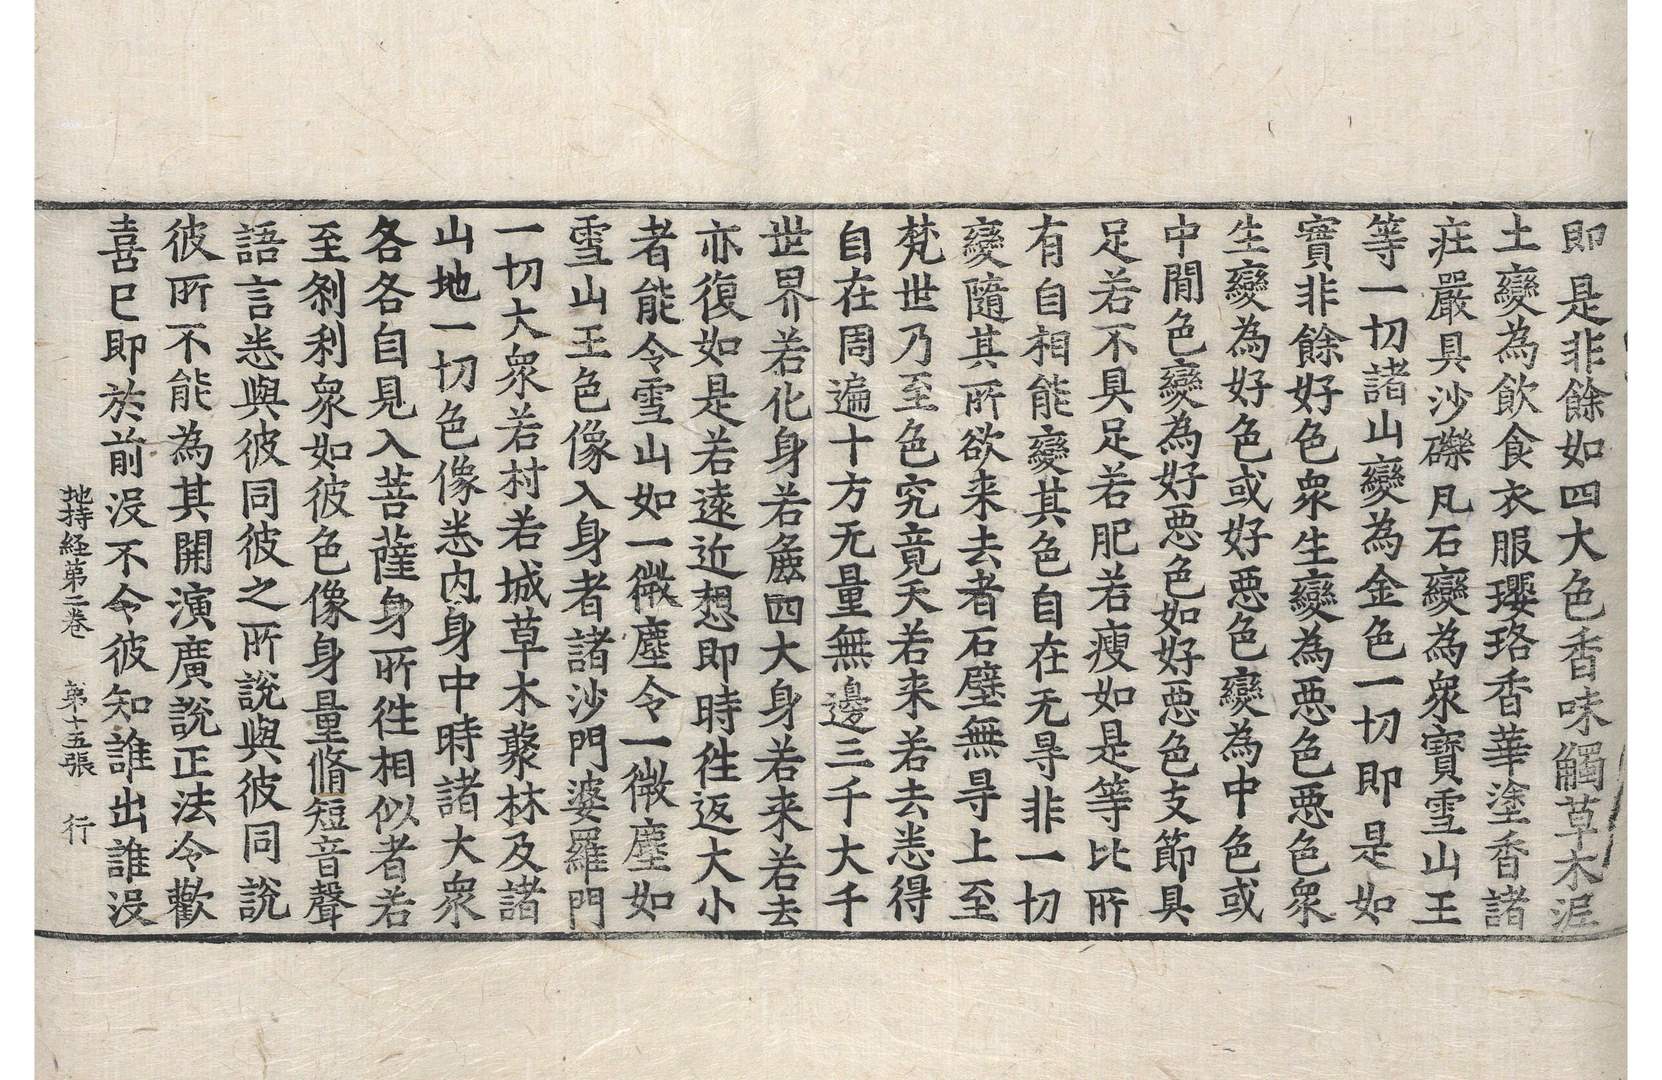 即是非餘如四大色香味觸草木涅
土變為飲食衣服瓔珞香華塗香諸
莊嚴具沙礫凡石變為衆寶雪山王
等一切諸山變為金色一切即是如
實非餘好色衆生變為惡色惡色衆
生變為好色或好惡色變為中色或
中閒色變為好惡色如好惡色支節具
足若不具足若肥若瘦如是等比所
有自相能變其色自在无㝵非一切
變隨其所欲来去者石壁無㝵上至
梵世乃至色究竟天若来若去悉得
自在周遍十方无量無邊三千大千
世界若化身若麁四大身若来若去
亦復如是若遠近想即時徃返大小
者能令雪山如一微塵令一微塵如
雪山王色像入身者諸沙門婆羅門
一切大衆若村若城草木藂林及諸
山地一切色像悉內身中時諸大衆
各各自見入菩薩身所徃相似者若
至刹利衆如彼色像身量脩短音聲
語言悉與彼同彼之所說與彼同說
彼所不能為其開演廣說正法令歡
喜已即於前沒不令彼知誰出誰沒
地持経第二卷 第十五張 行